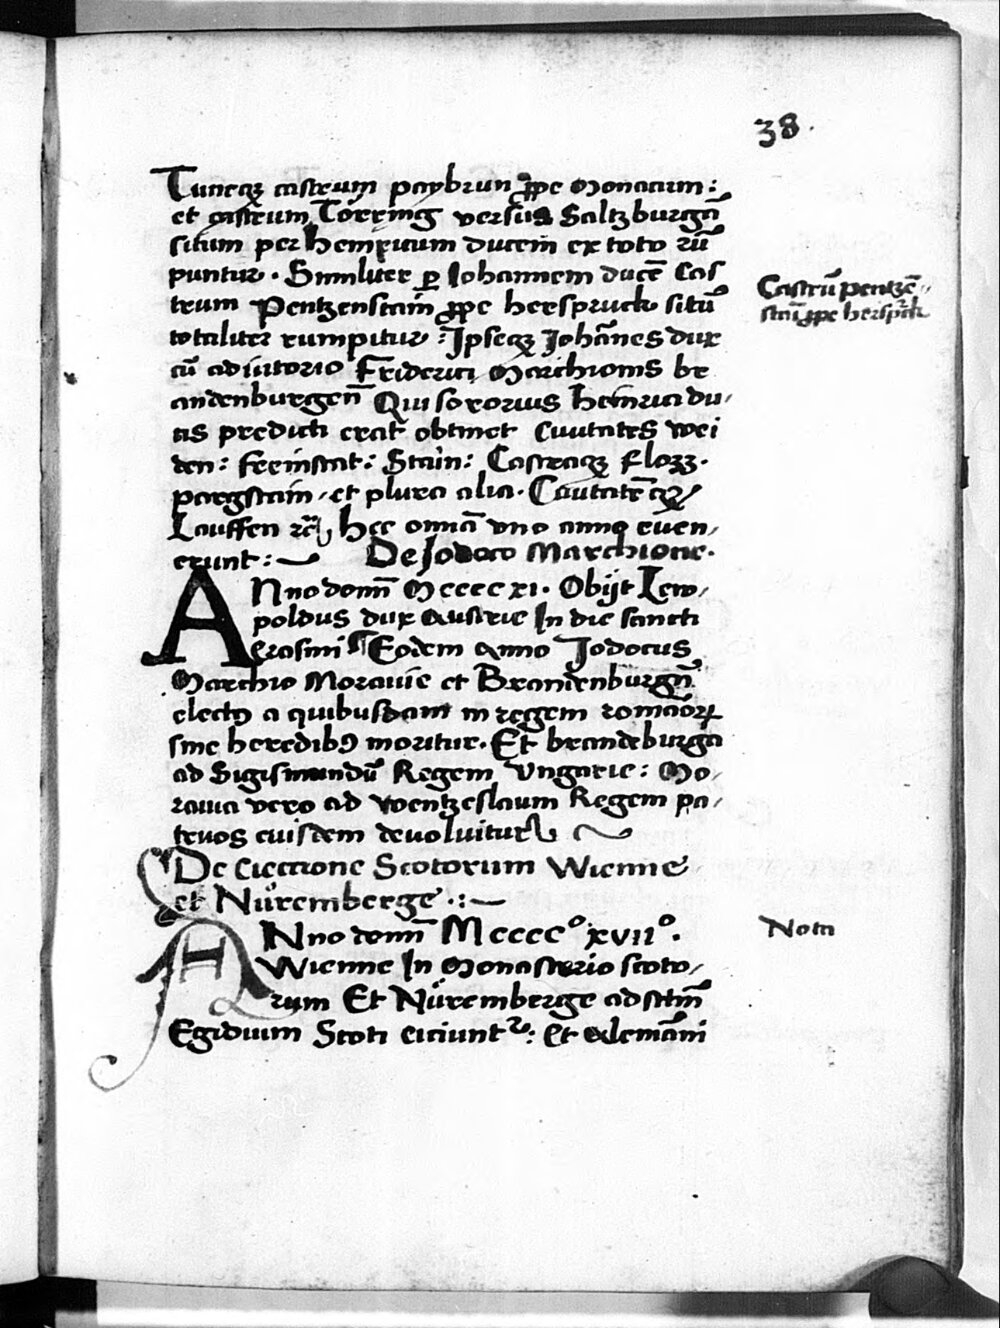 38.
Tuncqꝫ castrum paybrun ꝓpe Monacum:
et castrum Törring versus Saltzburgā
situm per hemricum ducem ex toto rū
puntur. Similiter ꝑ Johannem ducē Cas
trum Pentzenstain ꝓpe herspruck sitū
totaliter rumpitur: Ipseqꝫ Johānes dux
cū adiutorio Friderici Marchionis br
andenburgen̄ Qui sororius heinrici du,
cis predicti erat obtinet Ciuitates wei
den: Freinstat: Stain: Castraqꝫ Flozz.
pargstain, et plura alia. Ciuitatē qꝫ
Lauffen ꝛc̄ hec omīa vno anno euen,
erunt: De Jodoco Marchione.
Anno domī Mcccc xi. Obijt Lew,
poldus dux Austrie In die sancti
Erasmi ¶ Eodem Anno Jodocus
Marchio Morauie et Brandenburgn̄
electꝯ a quibusdam in regem romāoꝝ
sine heredibꝯ moritur. Et brandēburga
ad Sigismundū Regem Vngarie: Mo,
rauia vero ad wentzeslaum Regem pa,
truos euisdem deuoluitur
¶ De Eiectione Scotorum Wienne
et Nüremberge .:
Anno domī Mccccº xviiº.
Wienne In Monasterio scoto,
rum Et Nüremberge ad sctm̄
Egidium Scoti eiciunt̉: Et Alemāni
Castrū pentzē,
stāi ꝓpe herspruck
Nota